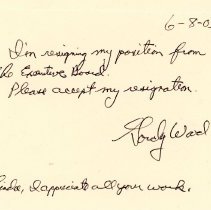 6-8-0
I'm resigning my position from
the Executive Board.
Please accept my resignation.
Ward
I appreciate all your work.